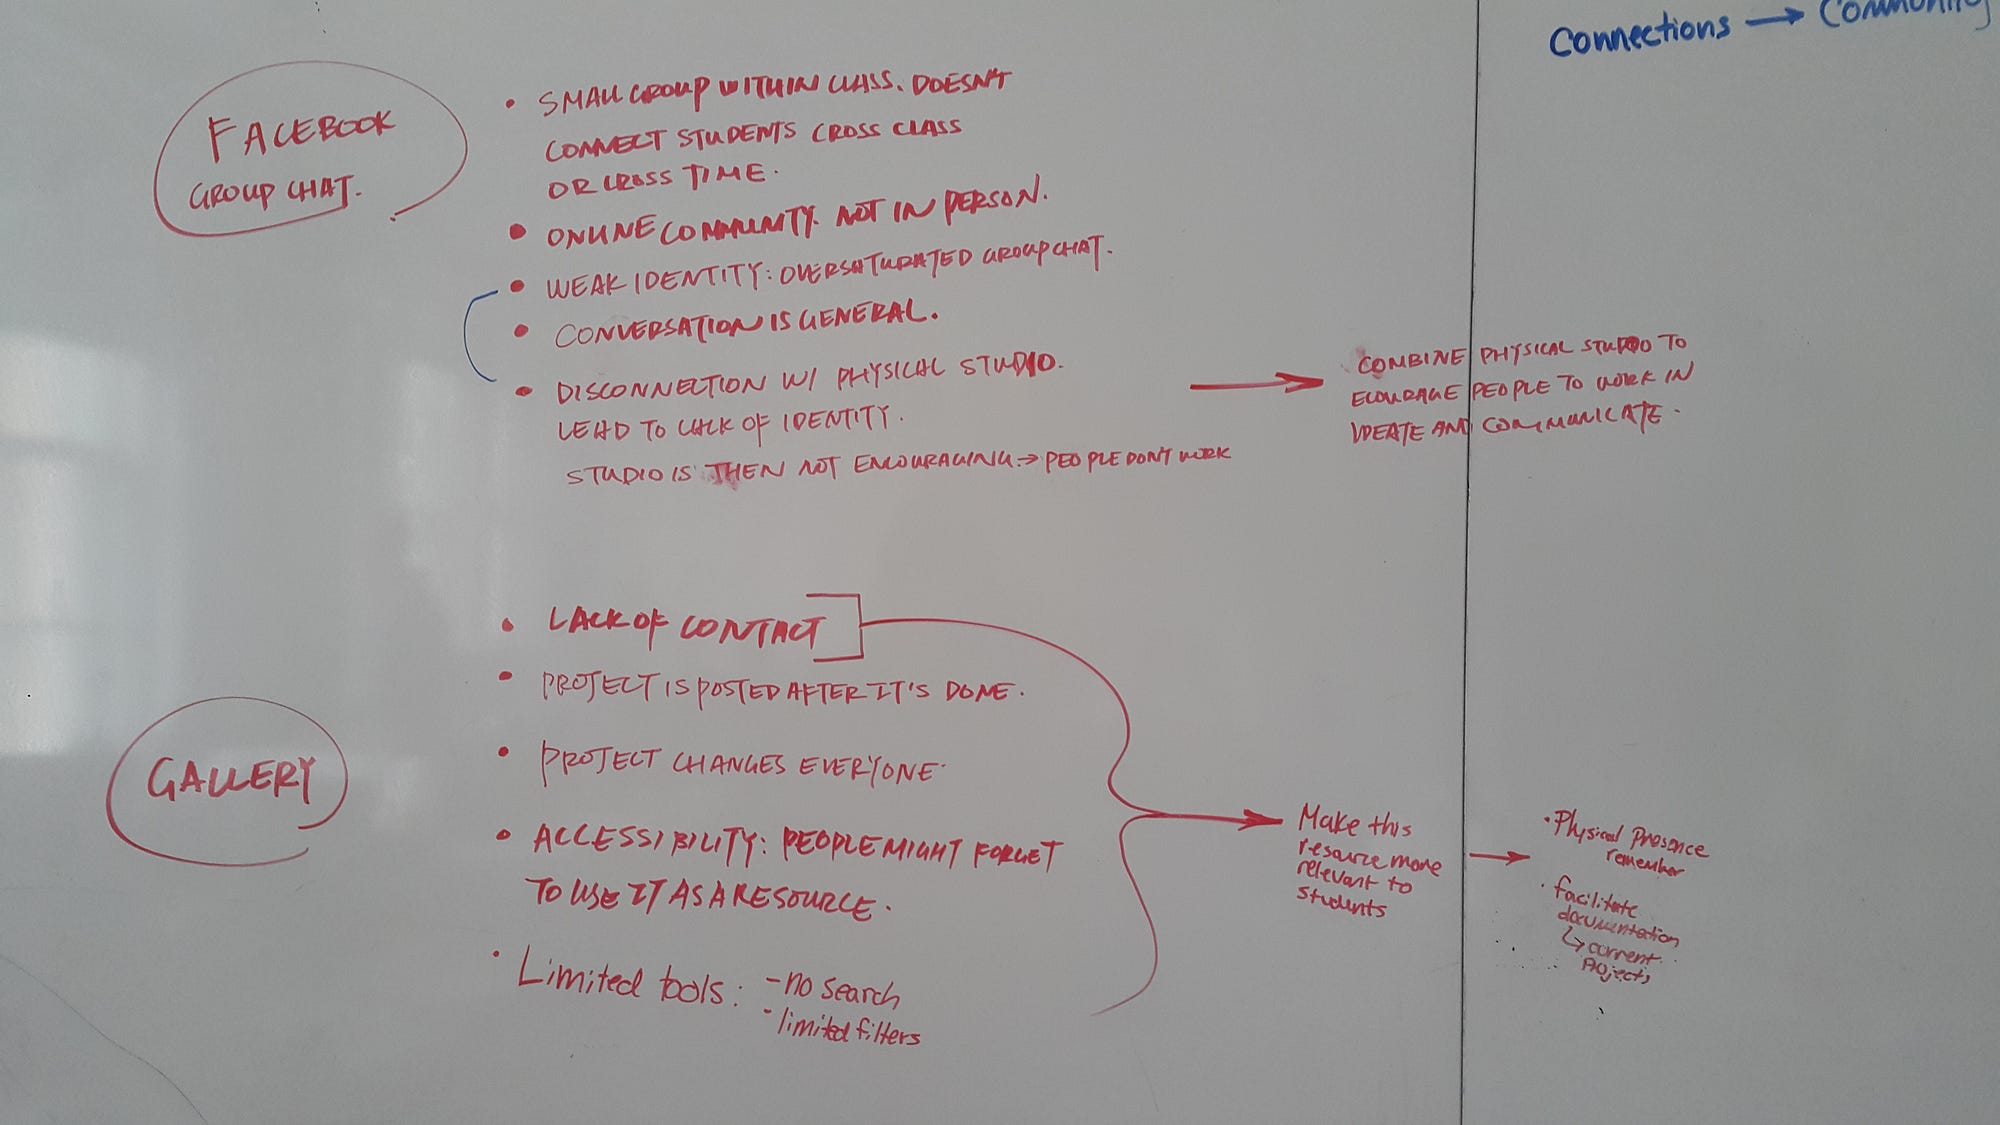 Connections → Community
FACEBOOK
GROUP CHAT.
• SMALL GROUP WITHIN CLASS. DOESN'T
CONNECT STUDENTS CROSS CLASS
OR CROSS TIME.
• ONLINE COMMUNITY. NOT IN PERSON.
• WEAK IDENTITY: OVERSATURATED GROUP CHAT.
• CONVERSATION IS GENERAL.
• DISCONNECTION W/ PHYSICAL STUDIO.
LEAD TO LACK OF IDENTITY.
STUDIO IS THEN NOT ENCOURAGING → PEOPLE DON'T WORK
→ COMBINE PHYSICAL STUDIO TO
ECOURAGE PEOPLE TO WORK IN
IDEATE AND COMMUNICATE.
GALLERY
• LACK OF CONTACT
• PROJECT IS POSTED AFTER IT'S DONE.
• PROJECT CHANGES EVERYONE.
• ACCESSIBILITY: PEOPLE MIGHT FORGET
TO USE IT AS A RESOURCE.
• Limited tools: - no search
- limited filters
Make this
resource more
relevant to
students
→ • Physical Presence
remember
• facilitate
documentation
↳ current
projects